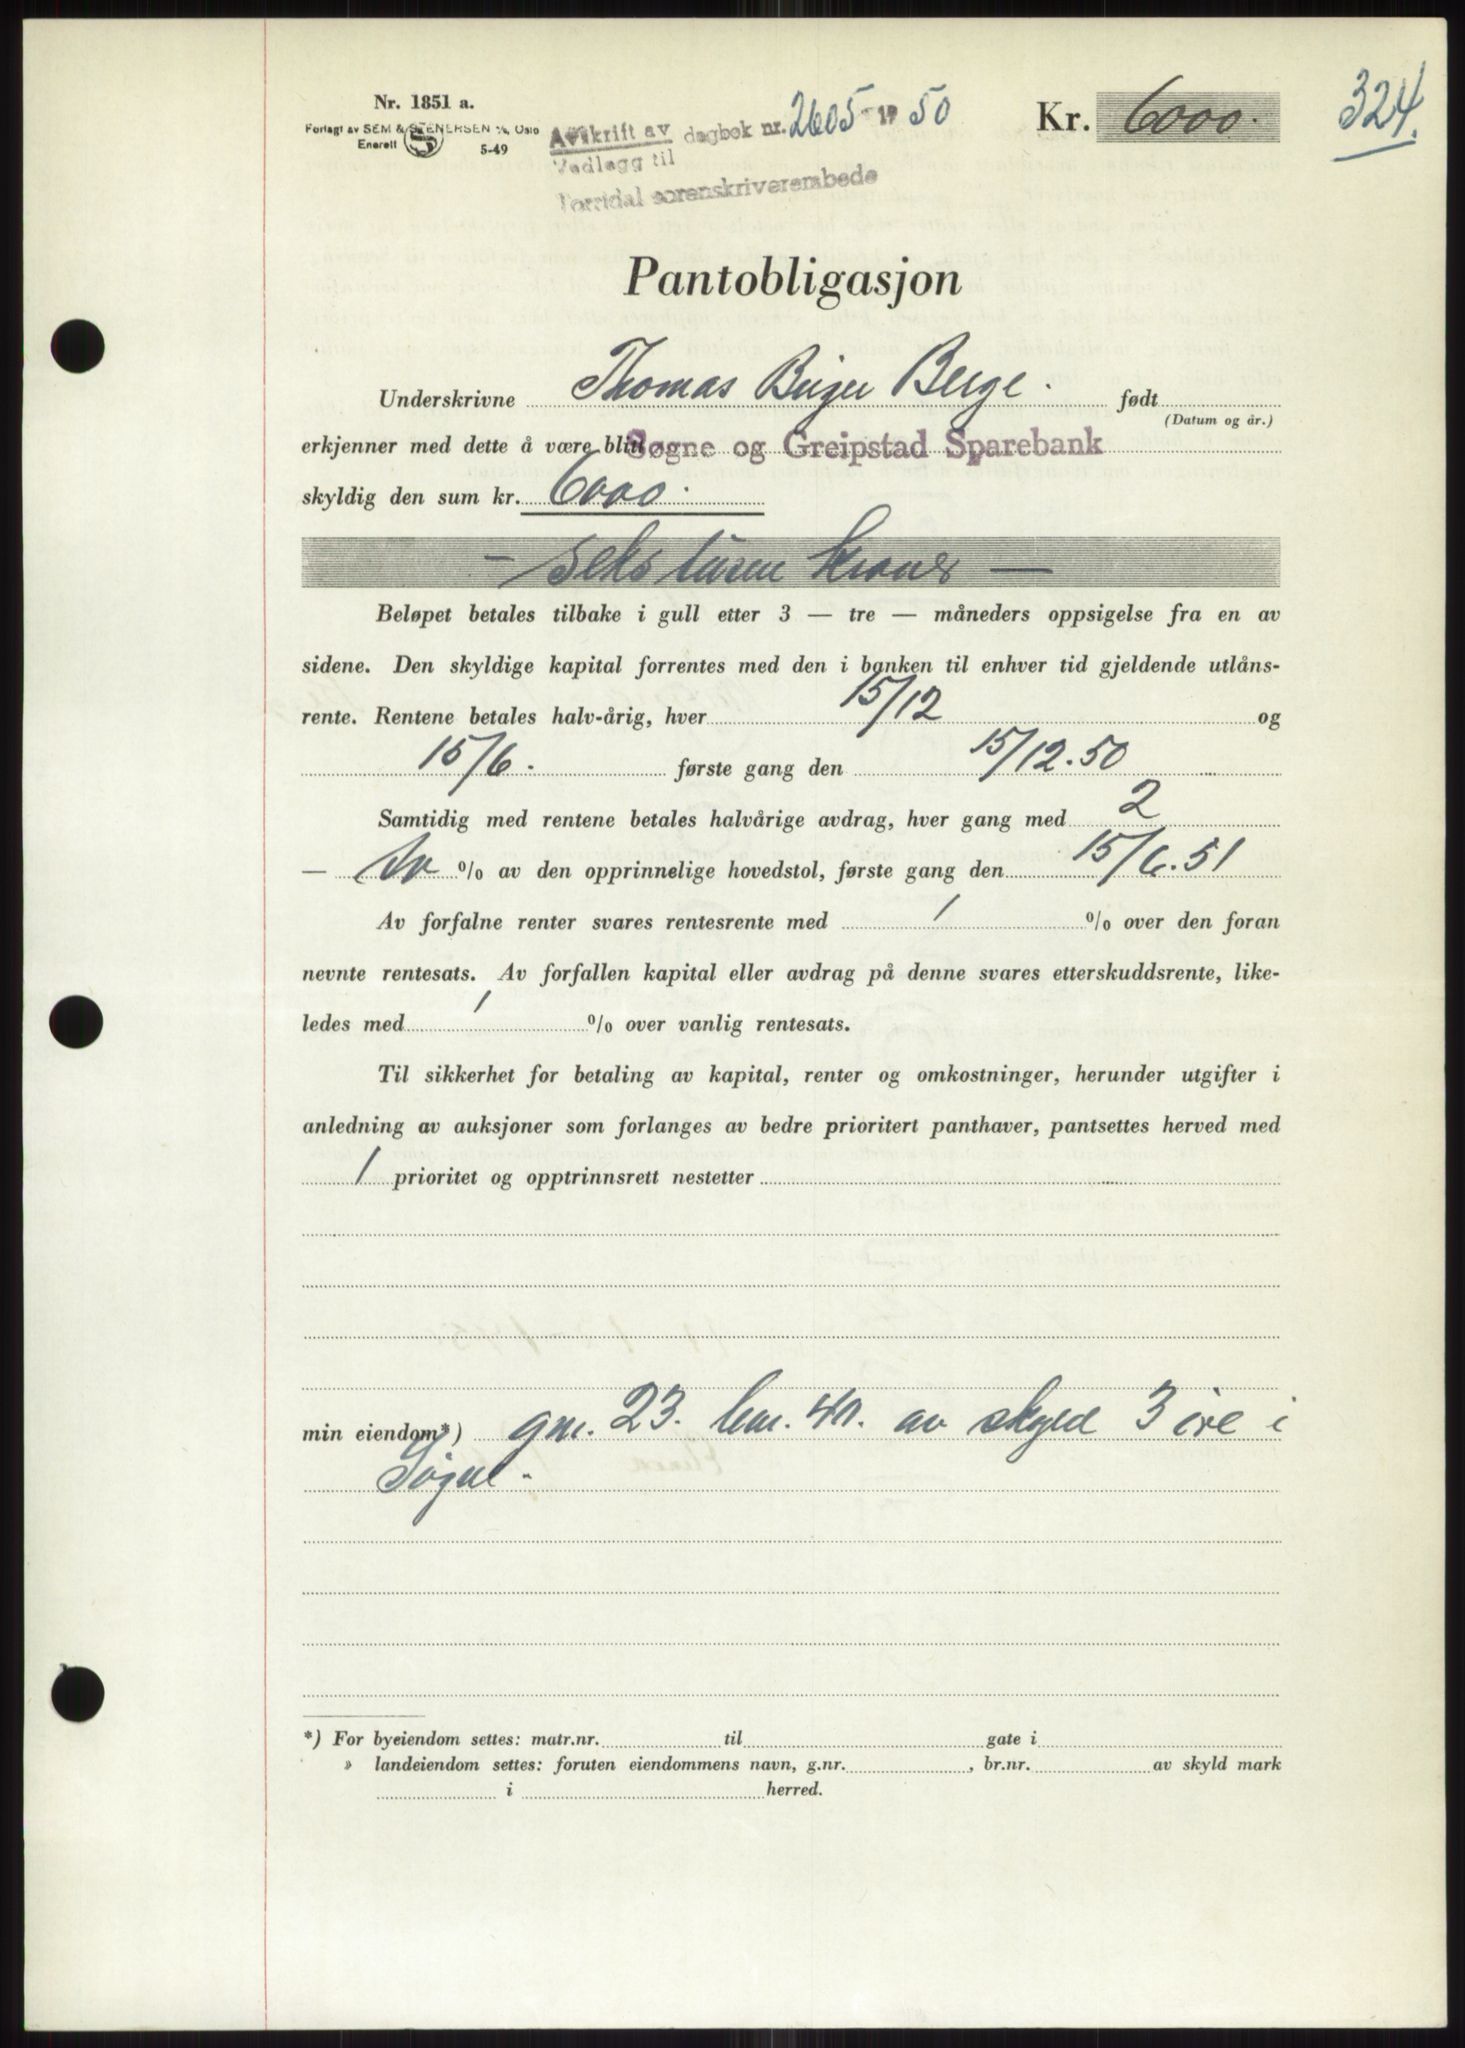 324.
Nr. 1851 a.
Forlagt av SEM & STENERSEN A/S, Oslo
Enerett 5-49
Avskrift av dagbok nr. 2605 - 19 50
Vedlegg til
Torridal sorenskriverembede
Kr. 6000.
Pantobligasjon
Underskrivne Thomas Birger Berge. født
(Datum og år.)
erkjenner med dette å være blitt Søgne og Greipstad Sparebank
skyldig den sum kr. 6000.
— seks tusen kroner —
Beløpet betales tilbake i gull etter 3 — tre — måneders oppsigelse fra en av
sidene. Den skyldige kapital forrentes med den i banken til enhver tid gjeldende utlåns-
rente. Rentene betales halv-årig, hver 15/12 og
15/6. første gang den 15/12.50
Samtidig med rentene betales halvårige avdrag, hver gang med 2
— to % av den opprinnelige hovedstol, første gang den 15/6.51
Av forfalne renter svares rentesrente med 1 % over den foran
nevnte rentesats. Av forfallen kapital eller avdrag på denne svares etterskuddsrente, like-
ledes med 1 % over vanlig rentesats.
Til sikkerhet for betaling av kapital, renter og omkostninger, herunder utgifter i
anledning av auksjoner som forlanges av bedre prioritert panthaver, pantsettes herved med
1 prioritet og opptrinnsrett nestetter
min eiendom*) gnr. 23. bnr. 41. av skyld 3 øre i
Søgne.
*) For byeiendom settes: matr.nr. til gate i
» landeiendom settes: foruten eiendommens navn, g.nr. , br.nr. av skyld mark
i herred.